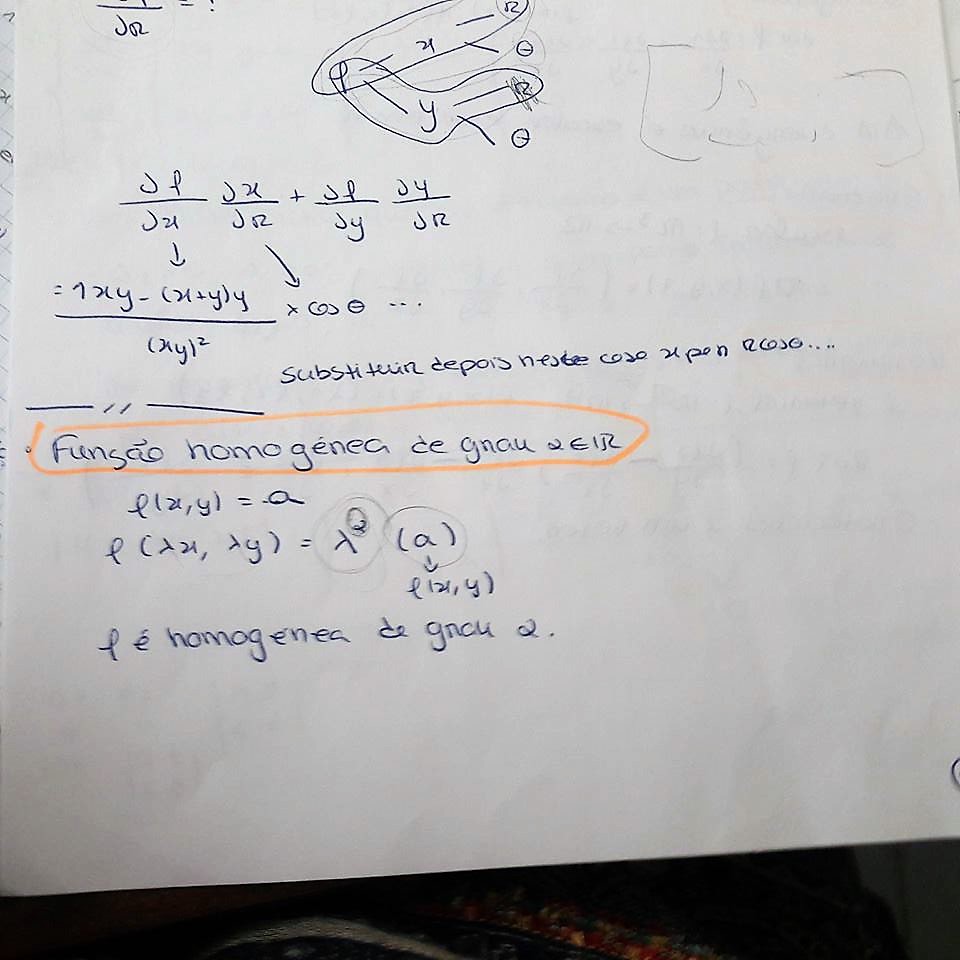 ∂f/∂R = ?
R
x
θ
f
y
R
θ
∂f/∂x ∂x/∂R + ∂f/∂y ∂y/∂R
= 1xy - (x+y)y / (xy)² × cos θ ...
Substituir depois neste caso x por R cosθ....
Função homogénea de grau α ∈ ℝ
f(x,y) = a
f(λx, λy) = λ^α (a)
f(x,y)
f é homogénea de grau α.